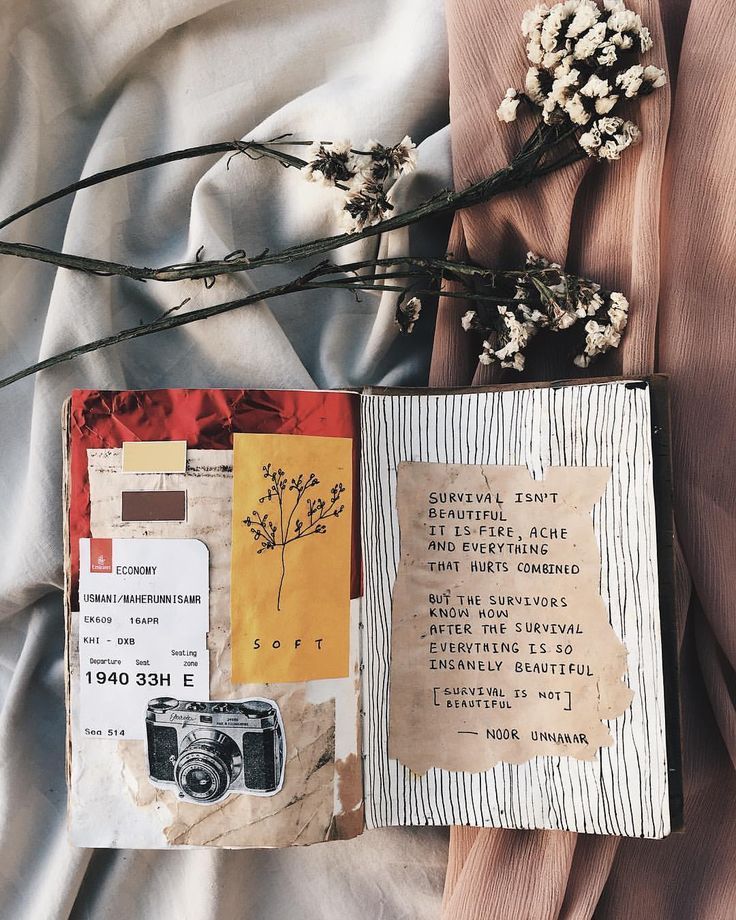 Emirates
ECONOMY
USMANI/MAHERUNNISAMR
EK609 16APR
KHI - DXB
Seating
Departure Seat zone
1940 33H E
Seq 514
SOFT
SURVIVAL ISN'T
BEAUTIFUL
IT IS FIRE, ACHE
AND EVERYTHING
THAT HURTS COMBINED
BUT THE SURVIVORS
KNOW HOW
AFTER THE SURVIVAL
EVERYTHING IS SO
INSANELY BEAUTIFUL
[SURVIVAL IS NOT
BEAUTIFUL]
— NOOR UNNAHAR